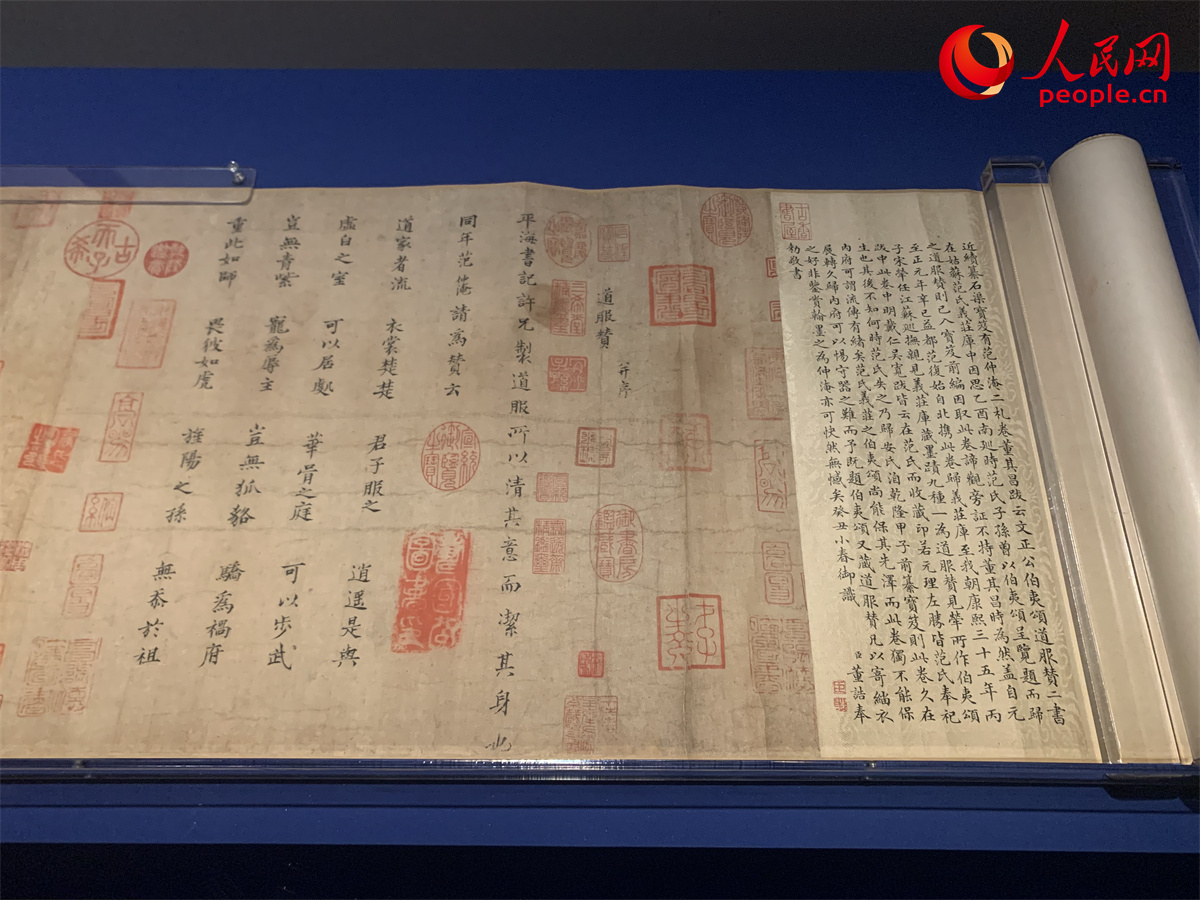 人民网
people.cn
近續纂石渠寶笈有范仲淹二札卷董其昌跋云文正公伯夷頌道服贊二書
在姑蘇范氏義莊庫中因思乙酉南巡時范氏子孫曾以伯夷頌呈覽題而歸
之道服贊則已入寶笈前編因取此卷諦觀旁証不特董其昌時為然蓋自元
至正元年辛巳益都范復始自北携此卷歸義莊庫至我朝康熙三十五年丙
子宋犖任江蘇巡撫親見義莊庫藏墨蹟九種一為道服贊見犖所作伯夷頌
跋中此卷中明戴仁吳寬跋皆云在范氏而收藏印若元理左勝皆范氏奉祀
生也其後不知何時范氏失之乃歸安氏洎乾隆甲子前纂寶笈則此卷久在
內府可謂流傳有緒矣范氏義莊之伯夷頌尚能保其先澤而此卷獨不能保
展轉久歸內府可以惕守器之難而予既題伯夷頌又藏道服贊凡以寄緇衣
之好非鑒賞翰墨之為仲淹亦可快然無憾矣癸丑小春御識 臣董誥奉
勑敬書
道服贊 并序
平海書記許兄製道服所以清其意而潔其身也
同年范仲淹請為贊云
道家者流 衣裳楚楚 君子服之 逍遥是與
虛白之室 可以居處 華胥之庭 可以步武
豈無青紫 寵為辱主 豈無狐貉 驕為禍府
重此如師 畏彼如虎 旌陽之孫 無忝於祖